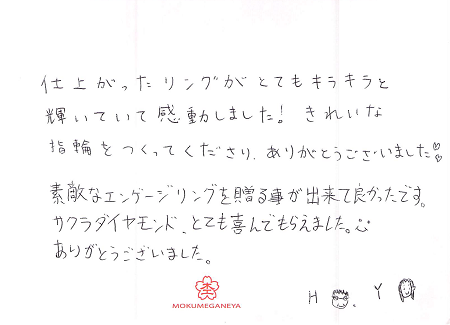 仕上がったリングがとてもキラキラと
輝いていて感動しました! きれいな
指輪をつくってくださり、ありがとうございました♡♡
素敵なエンゲージリングを贈る事が出来て良かったです。
サクラダイヤモンド、とても喜んでもらえました。☺
ありがとうございました。
MOKUMEGANEYA
H . Y